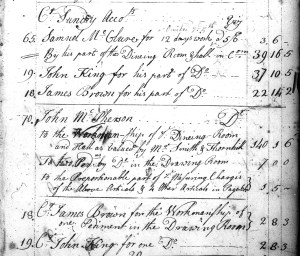 Cr. Sundry Accots
65. Samuel McClure, for 12 days work @ 5/6 3 6 -
By his part of the Dining Room & hall in Com 39 16 5
19. John King for his part of Do 37 10 5
18. James Brown for his part of Do 22 14 2
70. John McPherson Dr
to the Workman-ship of ye Dineing Room
and Hall as Valued by Mr Smith & Thornton 140 1 6
to by Do in the Drawing Room 7 0 0
to the Proportionable part of ye Measuring Charges
of the Above Articals & 4 Other Articals in 1 5 -
18. Cr. James Brown for the Workmanship of
one Pediment in the Drawing Room 2 8 3
19. Cr. John King for one Do 2 8 3